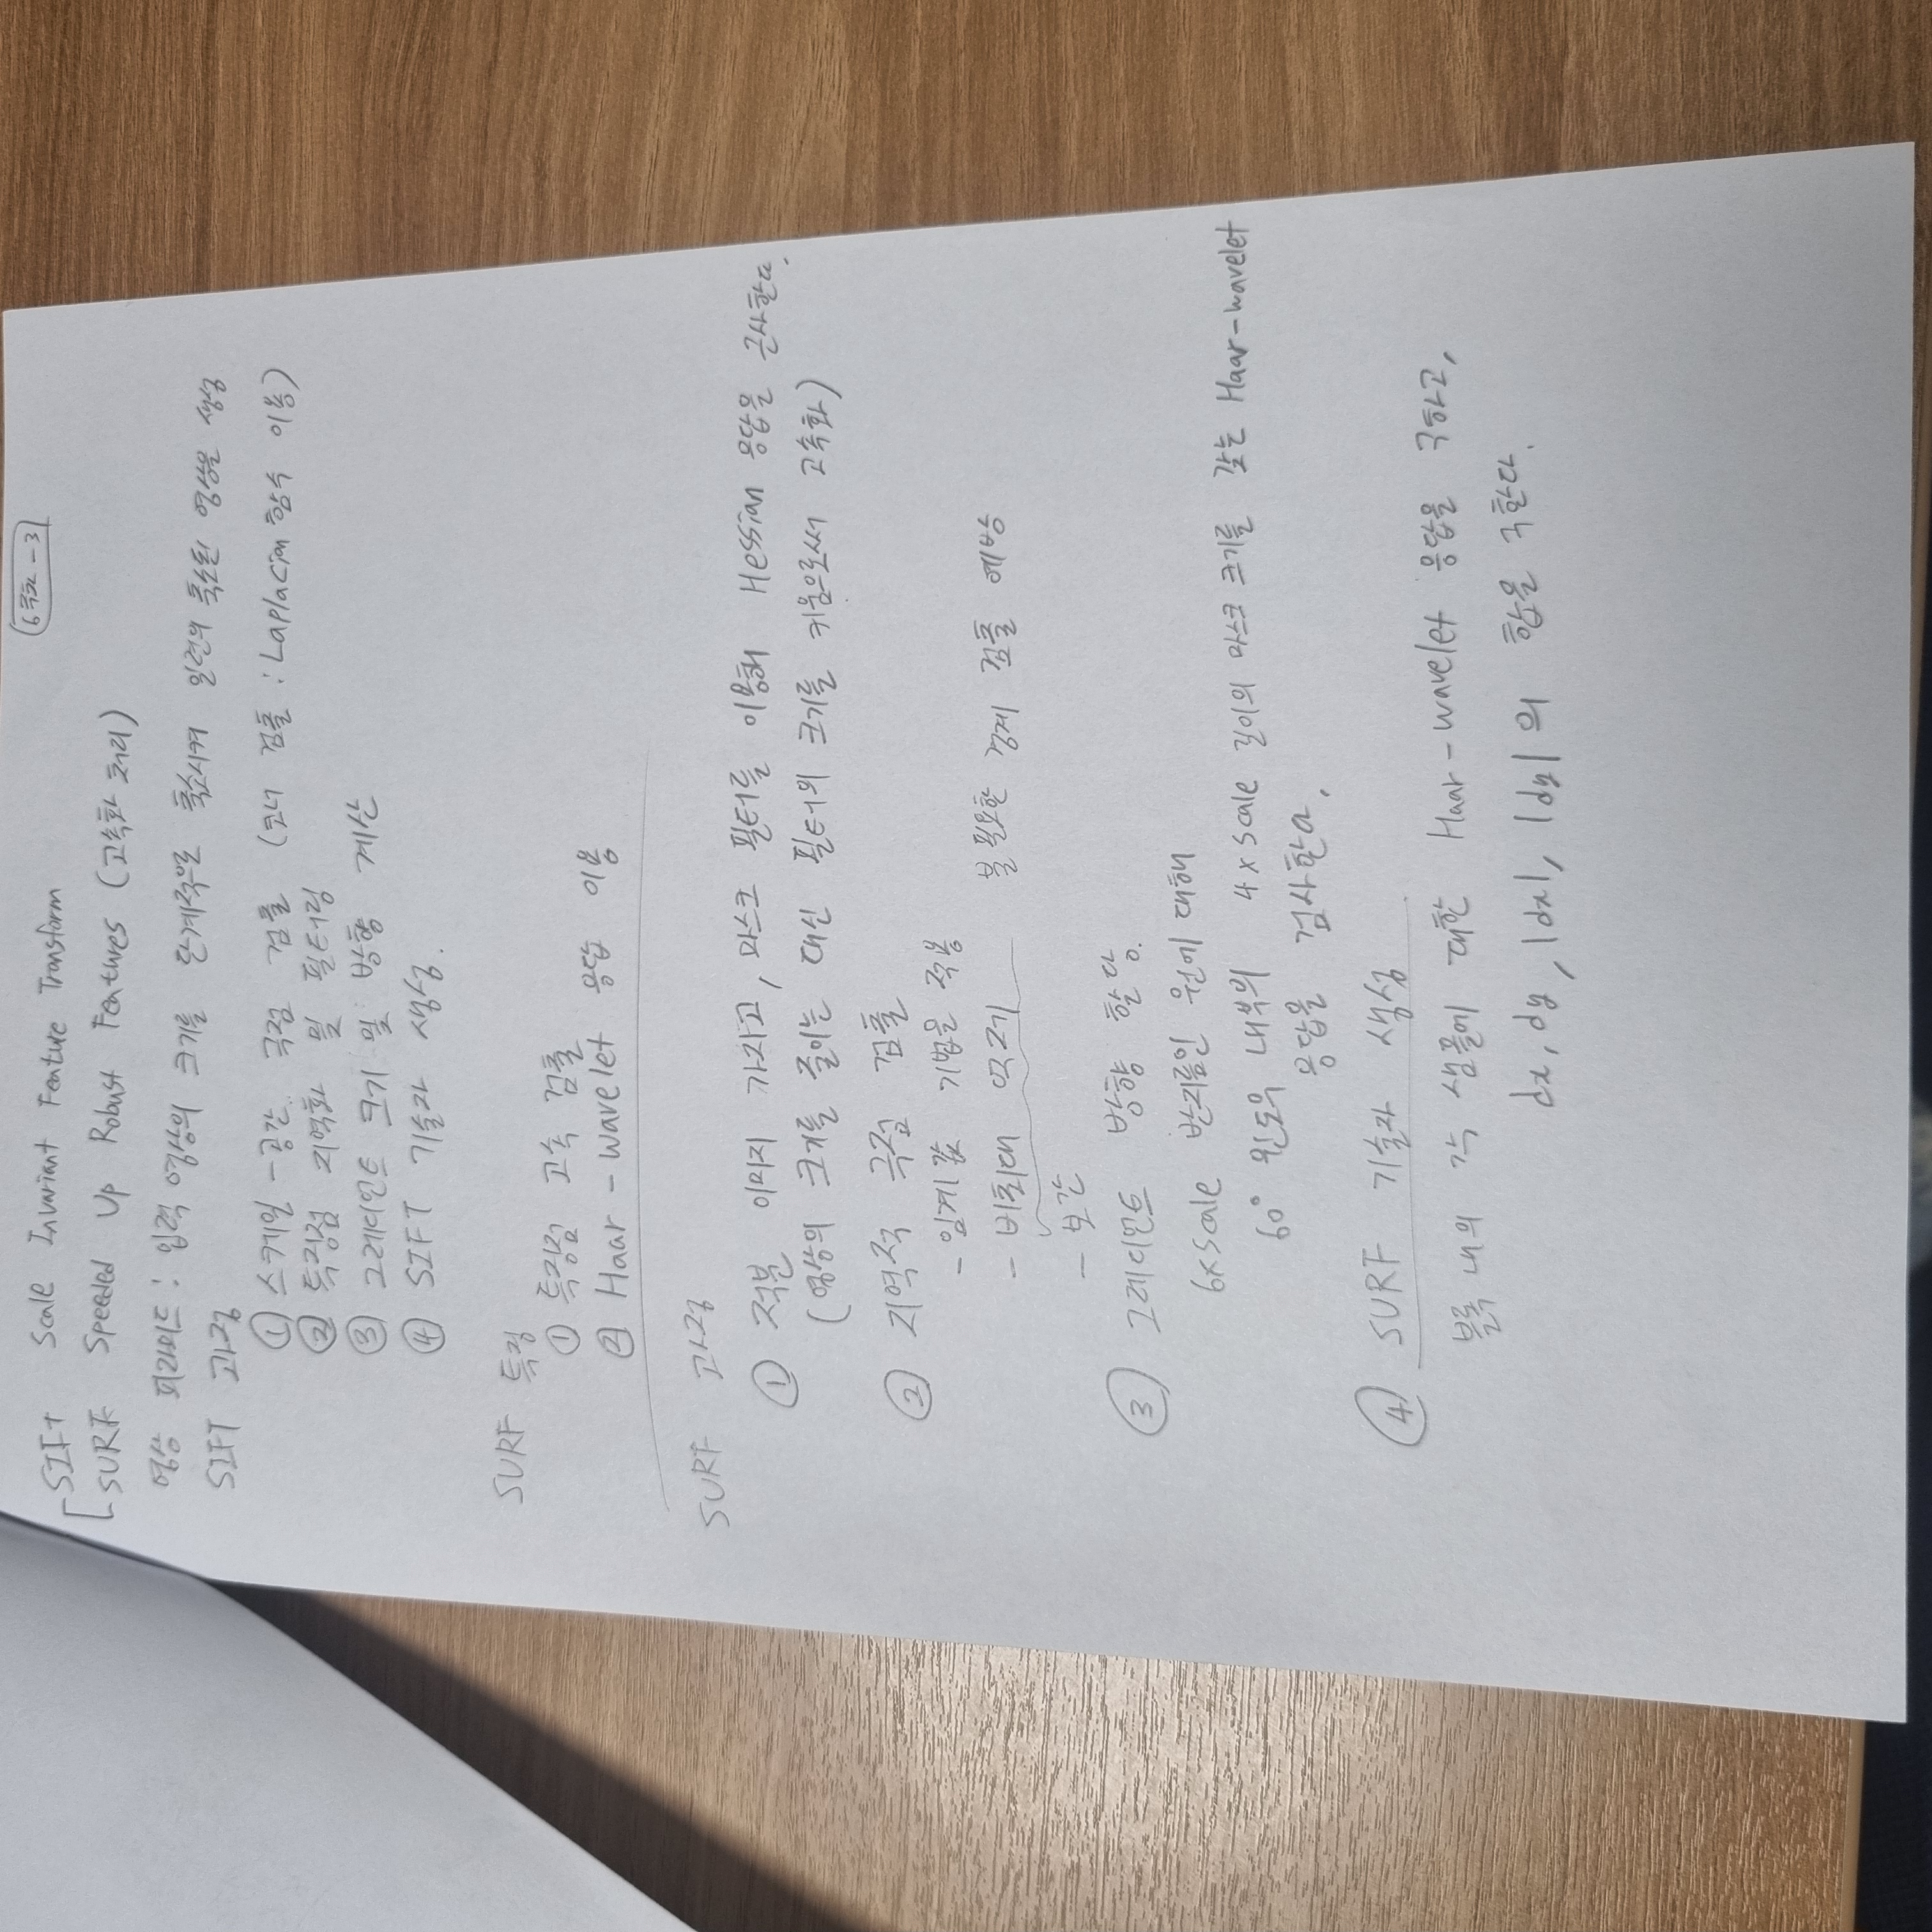 6주차 - 3
SIFT Scale Invariant Feature Transform
SURF Speeded Up Robust Features (고속화 처리)
영상 피라미드 : 입력 영상의 크기를 단계적으로 축소시켜 일련의 축소된 영상을 생성
SIFT 과정
① 스케일 - 공간 극점 검출 (코너 검출 : Laplacian 함수 이용)
② 특징점 지역화 및 필터링
③ 그레디언트 크기 및 방향 계산
④ SIFT 기술자 생성.
SURF 특징
① 특징점 고속 검출
② Haar - wavelet 응답 이용
SURF 과정
① 적분 이미지 가지고, 마스크 필터를 이용해 Hessian 응답을 근사한다.
(영상의 크기를 줄이는 대신 필터의 크기를 키움으로써 고속화)
② 지역적 극점 검출
- 임계값 기법을 적용
- 비최대 억제 불필요한 경계 검출 예방
- 보간
③ 그레디언트 방향 할당.
6xscale 반지름인 원에 대해
60° 윈도우 내부의 4 x scale 길이의 마스크 크기를 갖는 Haar-wavelet
응답을 검사한다.
④ SURF 기술자 생성
블록 내의 각 샘플에 대한 Haar - wavelet 응답을 구하고,
dx, dy, |dx|, |dy| 의 합을 구한다.